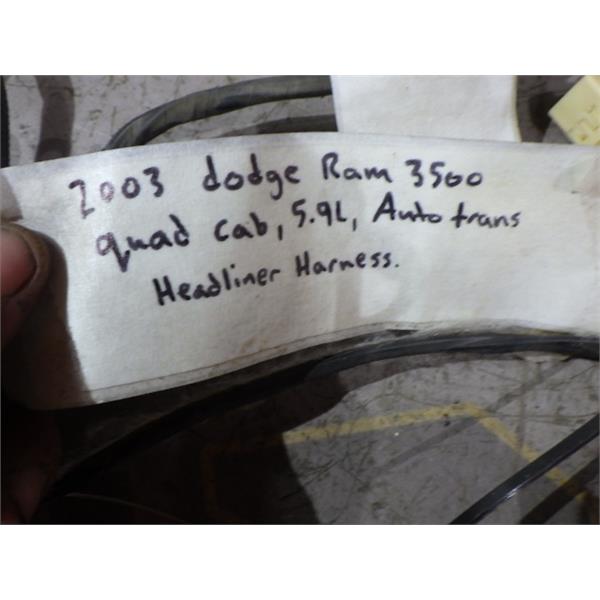 2003 dodge Ram 3500
quad cab, 5.9L, Auto trans
Headliner Harness.